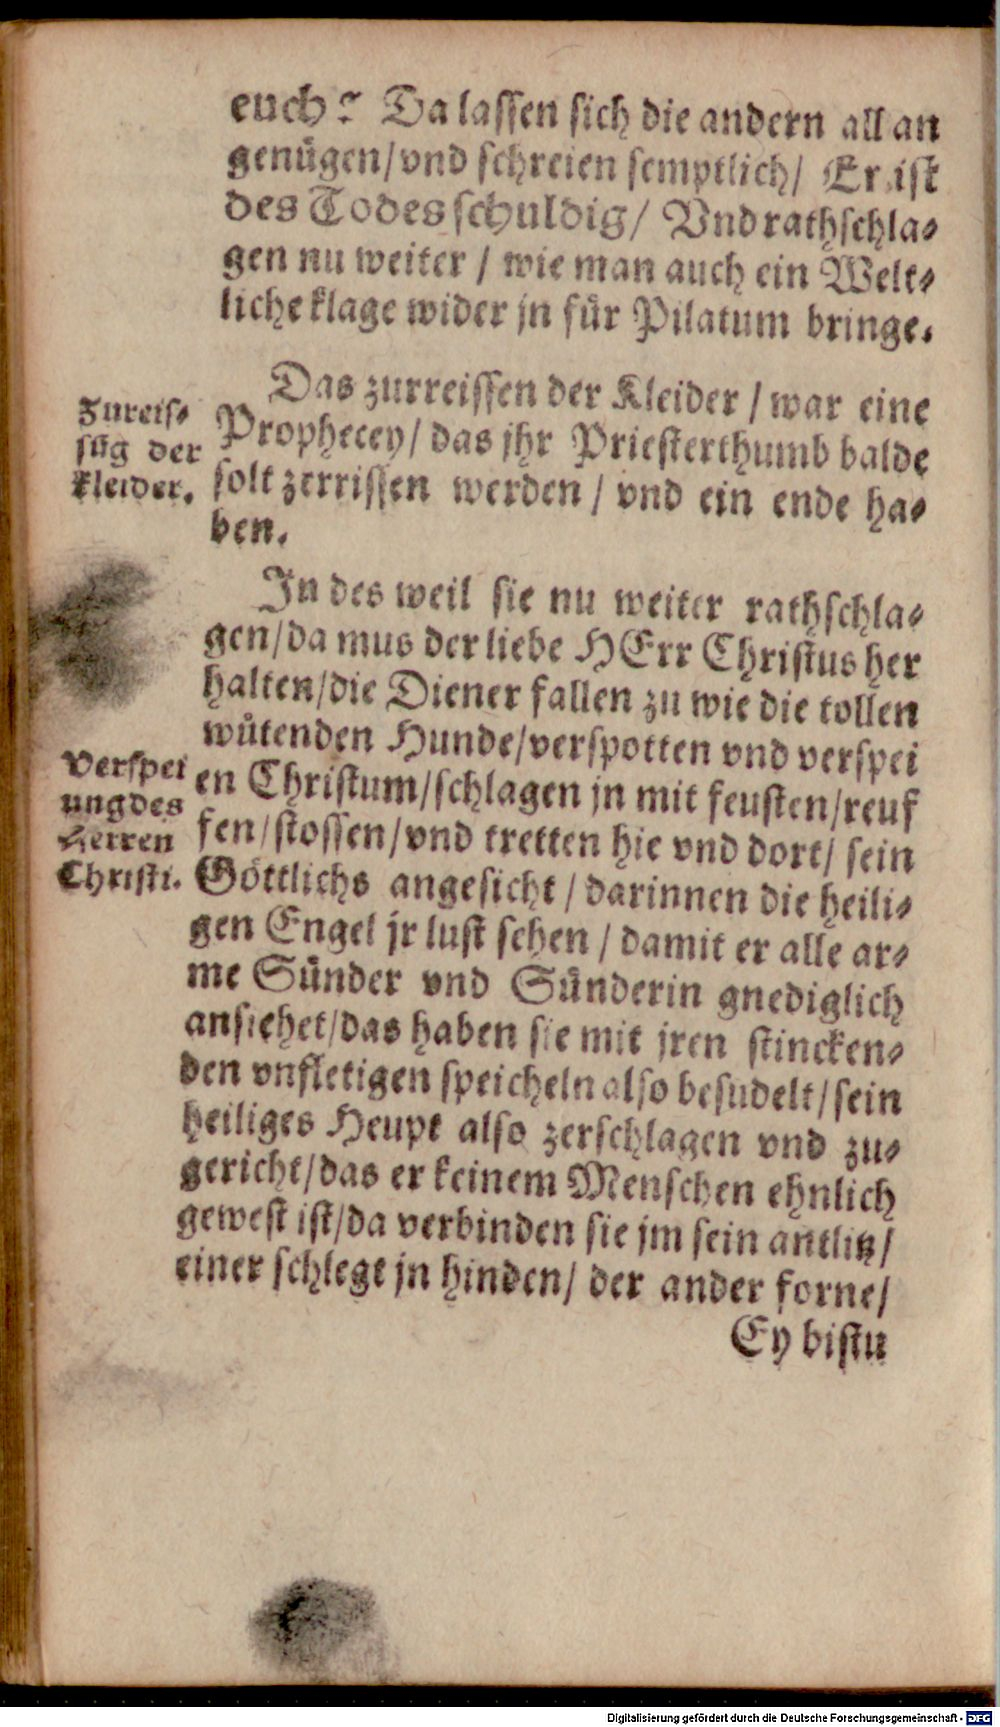 euch? Da lassen sich die andern all an
genügen/vnd schreien semptlich/ Er ist
des Todes schuldig/ Vnd rathschla⸗
gen nu weiter / wie man auch ein Welt⸗
liche klage wider jn für Pilatum bringe.
Das zurreissen der Kleider / war eine
Prophecey/ das jhr Priesterthumb balde
solt zerrissen werden / vnd ein ende ha⸗
ben.
Zureis⸗
sūg der
Kleider.
In des weil sie nu weiter rathschla⸗
gen/da mus der liebe HErr Christus her
halten/die Diener fallen zu wie die tollen
wütenden Hunde/verspotten vnd verspei
en Christum/schlagen jn mit feusten/reuf
fen/stossen/vnd tretten hie vnd dort/ sein
Göttlichs angesicht / darinnen die heili⸗
gen Engel jr lust sehen / damit er alle ar⸗
me Sünder vnd Sünderin gnediglich
ansiehet/das haben sie mit jren stincken⸗
den vnfletigen speicheln also besudelt/sein
heiliges Heupt also zerschlagen vnd zu⸗
gericht/das er keinem Menschen ehnlich
gewest ist/da verbinden sie jm sein antlitz/
einer schlegt jn hinden/ der ander forne/
Verspei
ung des
Herren
Christi.
Ey bistu
Digitalisierung gefördert durch die Deutsche Forschungsgemeinschaft - DFG